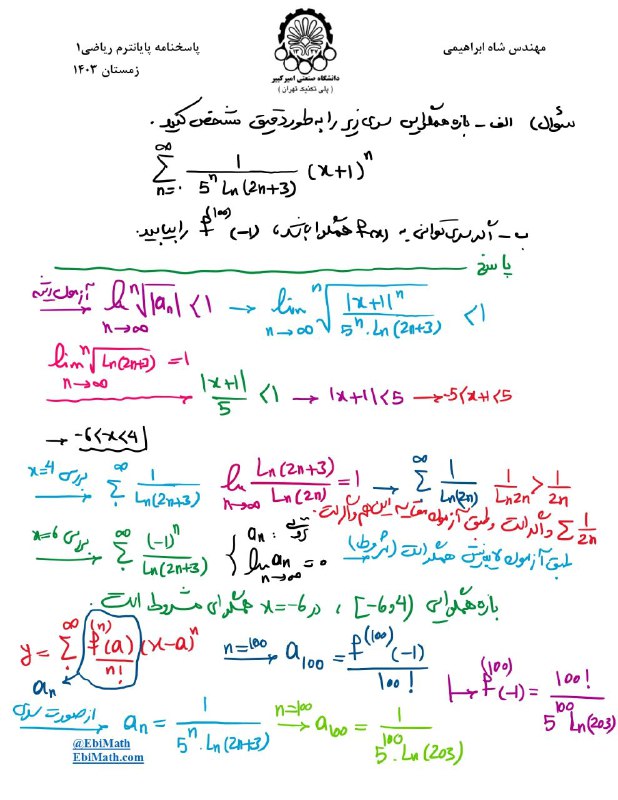 مهندس شاه ابراهیمی
دانشگاه صنعتی امیرکبیر
( پلی تکنیک تهران )
پاسخنامه پایانترم ریاضی۱
زمستان ۱۴۰۳
سؤال) الف - بازه همگرایی سری زیر را به طور دقیق مشخص کنید.
∑_{n=0}^{∞} 1/(5^n Ln(2n+3)) (x+1)^n
ب - اگر سری توانی به f(x) همگرا باشد، f^(100)(-1) را بیابید.
پاسخ
آزمون ریشه → lim_{n→∞} ⁿ√|a_n| < 1 → lim_{n→∞} ⁿ√(|x+1|^n / (5^n . Ln(2n+3))) < 1
lim_{n→∞} ⁿ√(Ln(2n+3)) = 1 → |x+1|/5 < 1 → |x+1| < 5 → -5 < x+1 < 5
→ -6 < x < 4
بررسی x=4 → ∑^∞ 1/(Ln(2n+3)) lim_{n→∞} Ln(2n+3)/Ln(2n) = 1 → ∑^∞ 1/Ln(2n) 1/Ln2n > 1/2n
∑ 1/2n واگراست و طبق آزمون مقایسه این هم واگراست.
بررسی x=6 → ∑^∞ (-1)^n/Ln(2n+3) { a_n : نزولی
lim_{n→∞} a_n = 0 → طبق آزمون لایبنیتس همگراست (مشروط)
بازه همگرایی [-6,4) ، در x=-6 همگرای مشروط است.
y = ∑^∞ f^(n)(a)/n! (x-a)^n n=100 → a_100 = f^(100)(-1)/100!
a_n
↦ f^(100)(-1) = 100!/(5^100 Ln(203))
از صورت سری → a_n = 1/(5^n . Ln(2n+3)) n=100 → a_100 = 1/(5^100 . Ln(203))
@EbiMath
EbiMath.com